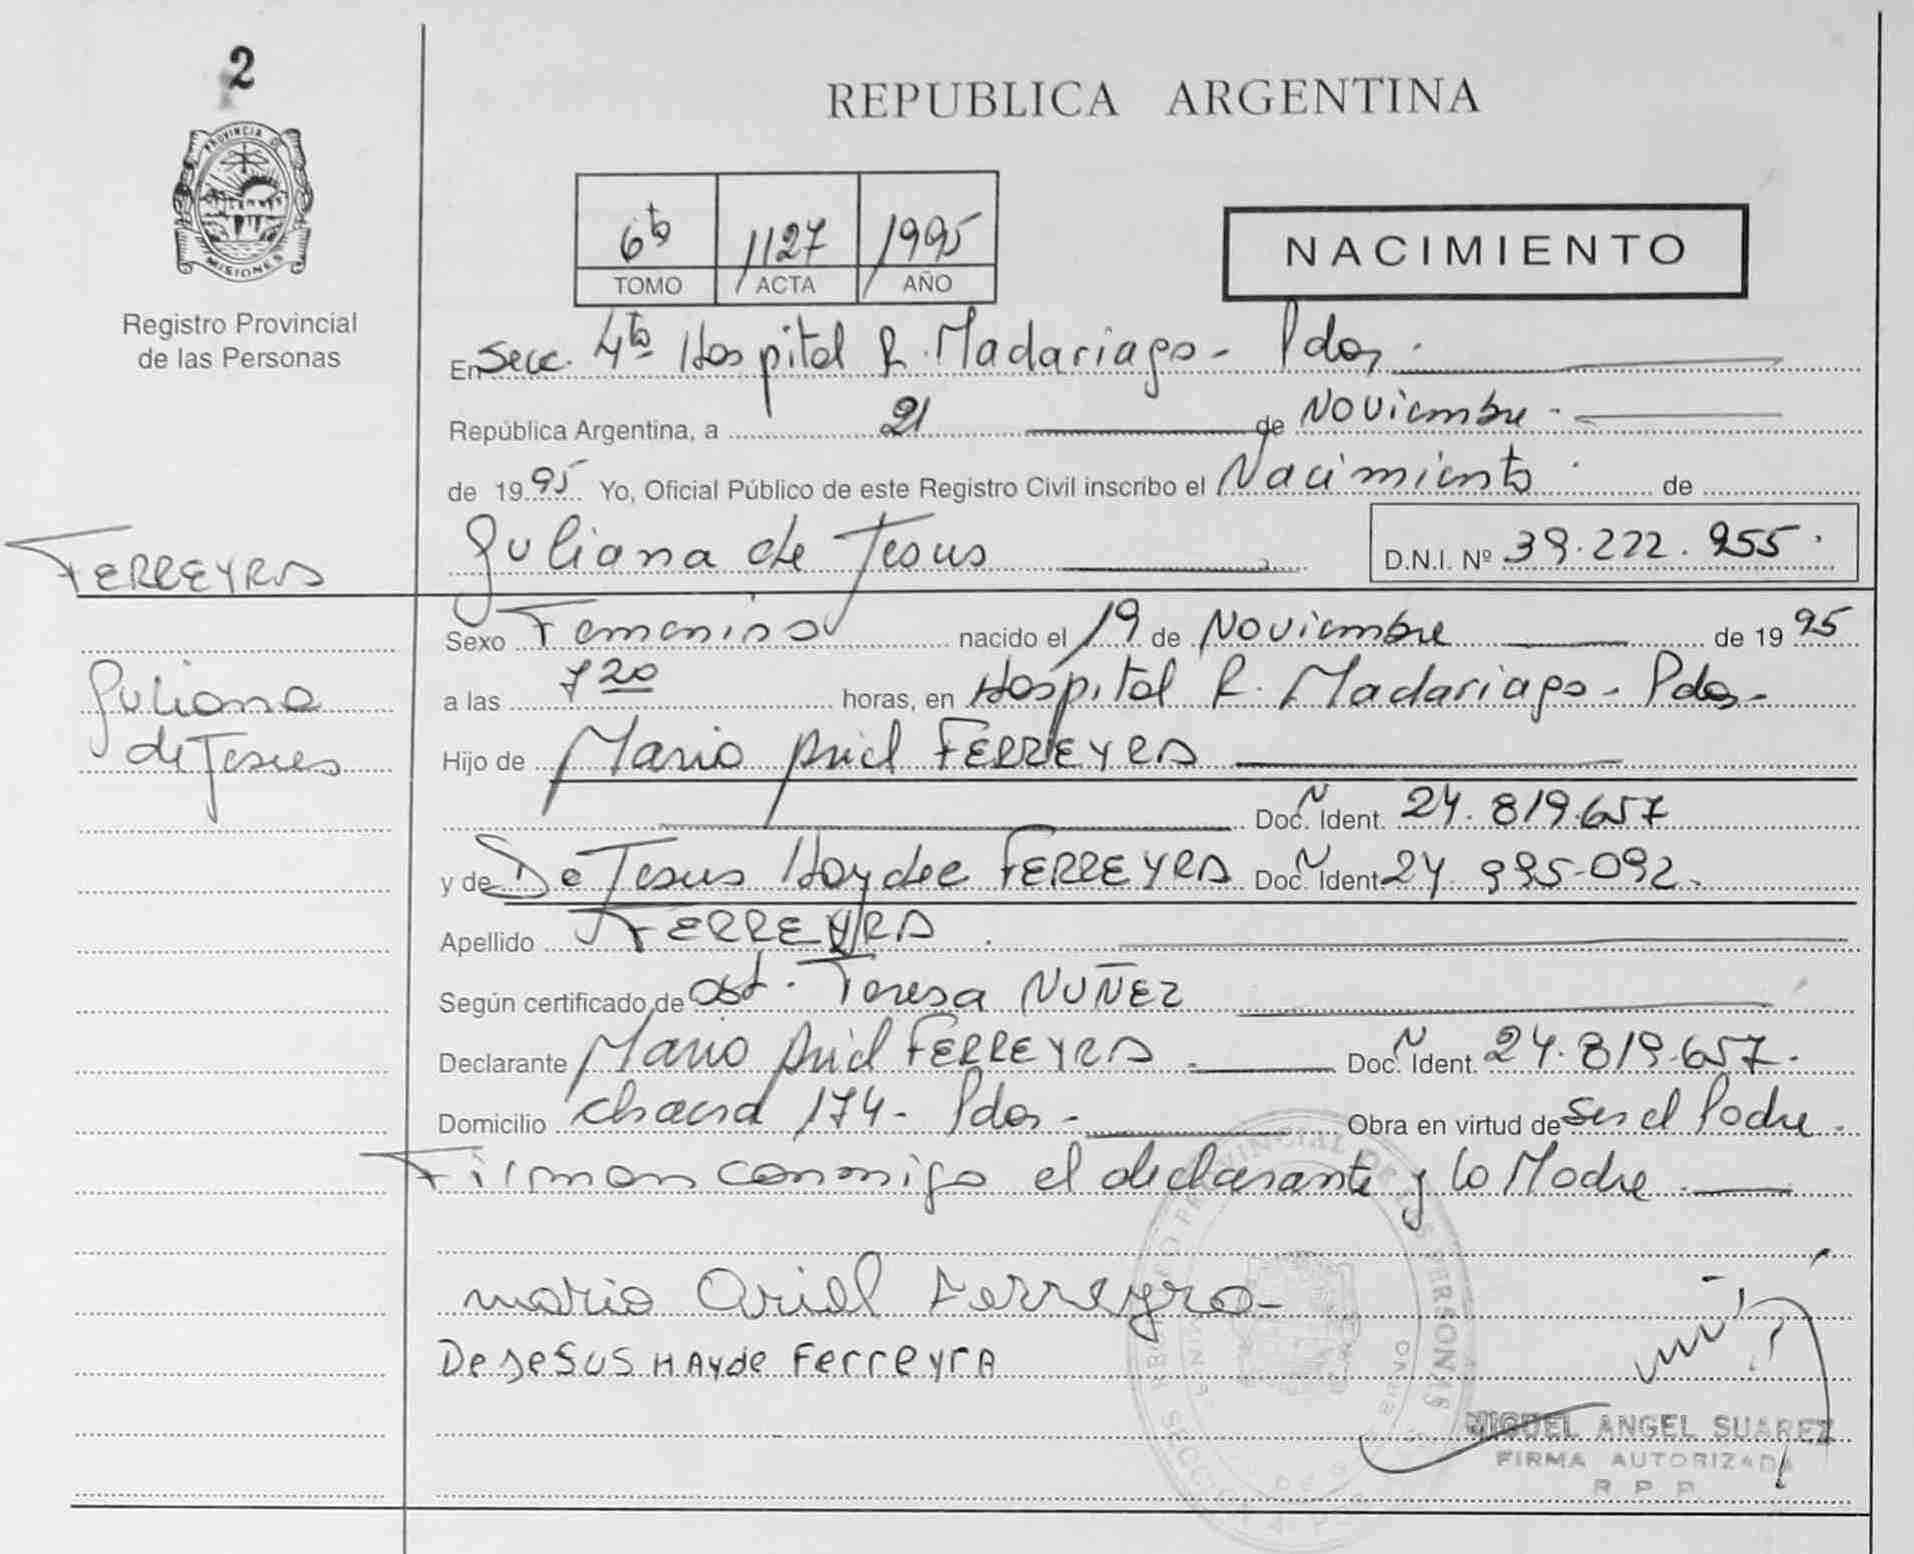 2
PROVINCIA DE
MISIONES
Registro Provincial
de las Personas
REPUBLICA ARGENTINA
6to 1127 1995
TOMO ACTA AÑO
NACIMIENTO
En Secc. 4ta Hospital R. Madariaga - Pdas.
República Argentina, a 21 de Noviembre -
de 1995 Yo, Oficial Público de este Registro Civil inscribo el Nacimiento de
FERREYRA Juliana de Jesus D.N.I. Nº 39.222.955.
Sexo Femenino nacido el 19 de Noviembre de 1995
a las 7 20 horas, en Hospital R. Madariaga - Pdas -
Juliana
de Jesus
Hijo de Mario Ariel FERREYRA
Doc. Ident. 24.819.657
y de De Jesus Haydee FERREYRA Doc. Ident 24.995.092.
Apellido FERREYRA
Según certificado de Obst. Teresa NUÑEZ
Declarante Mario Ariel FERREYRA Doc. Ident. 24.819.657.
Domicilio chacra 174 - Pdas - Obra en virtud de ser el Padre.
Firman conmigo el declarante y la Madre
mario Ariel Ferreyra
De Jesus Hayde Ferreyra
REGISTRO PROVINCIAL DE LAS PERSONAS
MIGUEL ANGEL SUAREZ
FIRMA AUTORIZADA
R P P